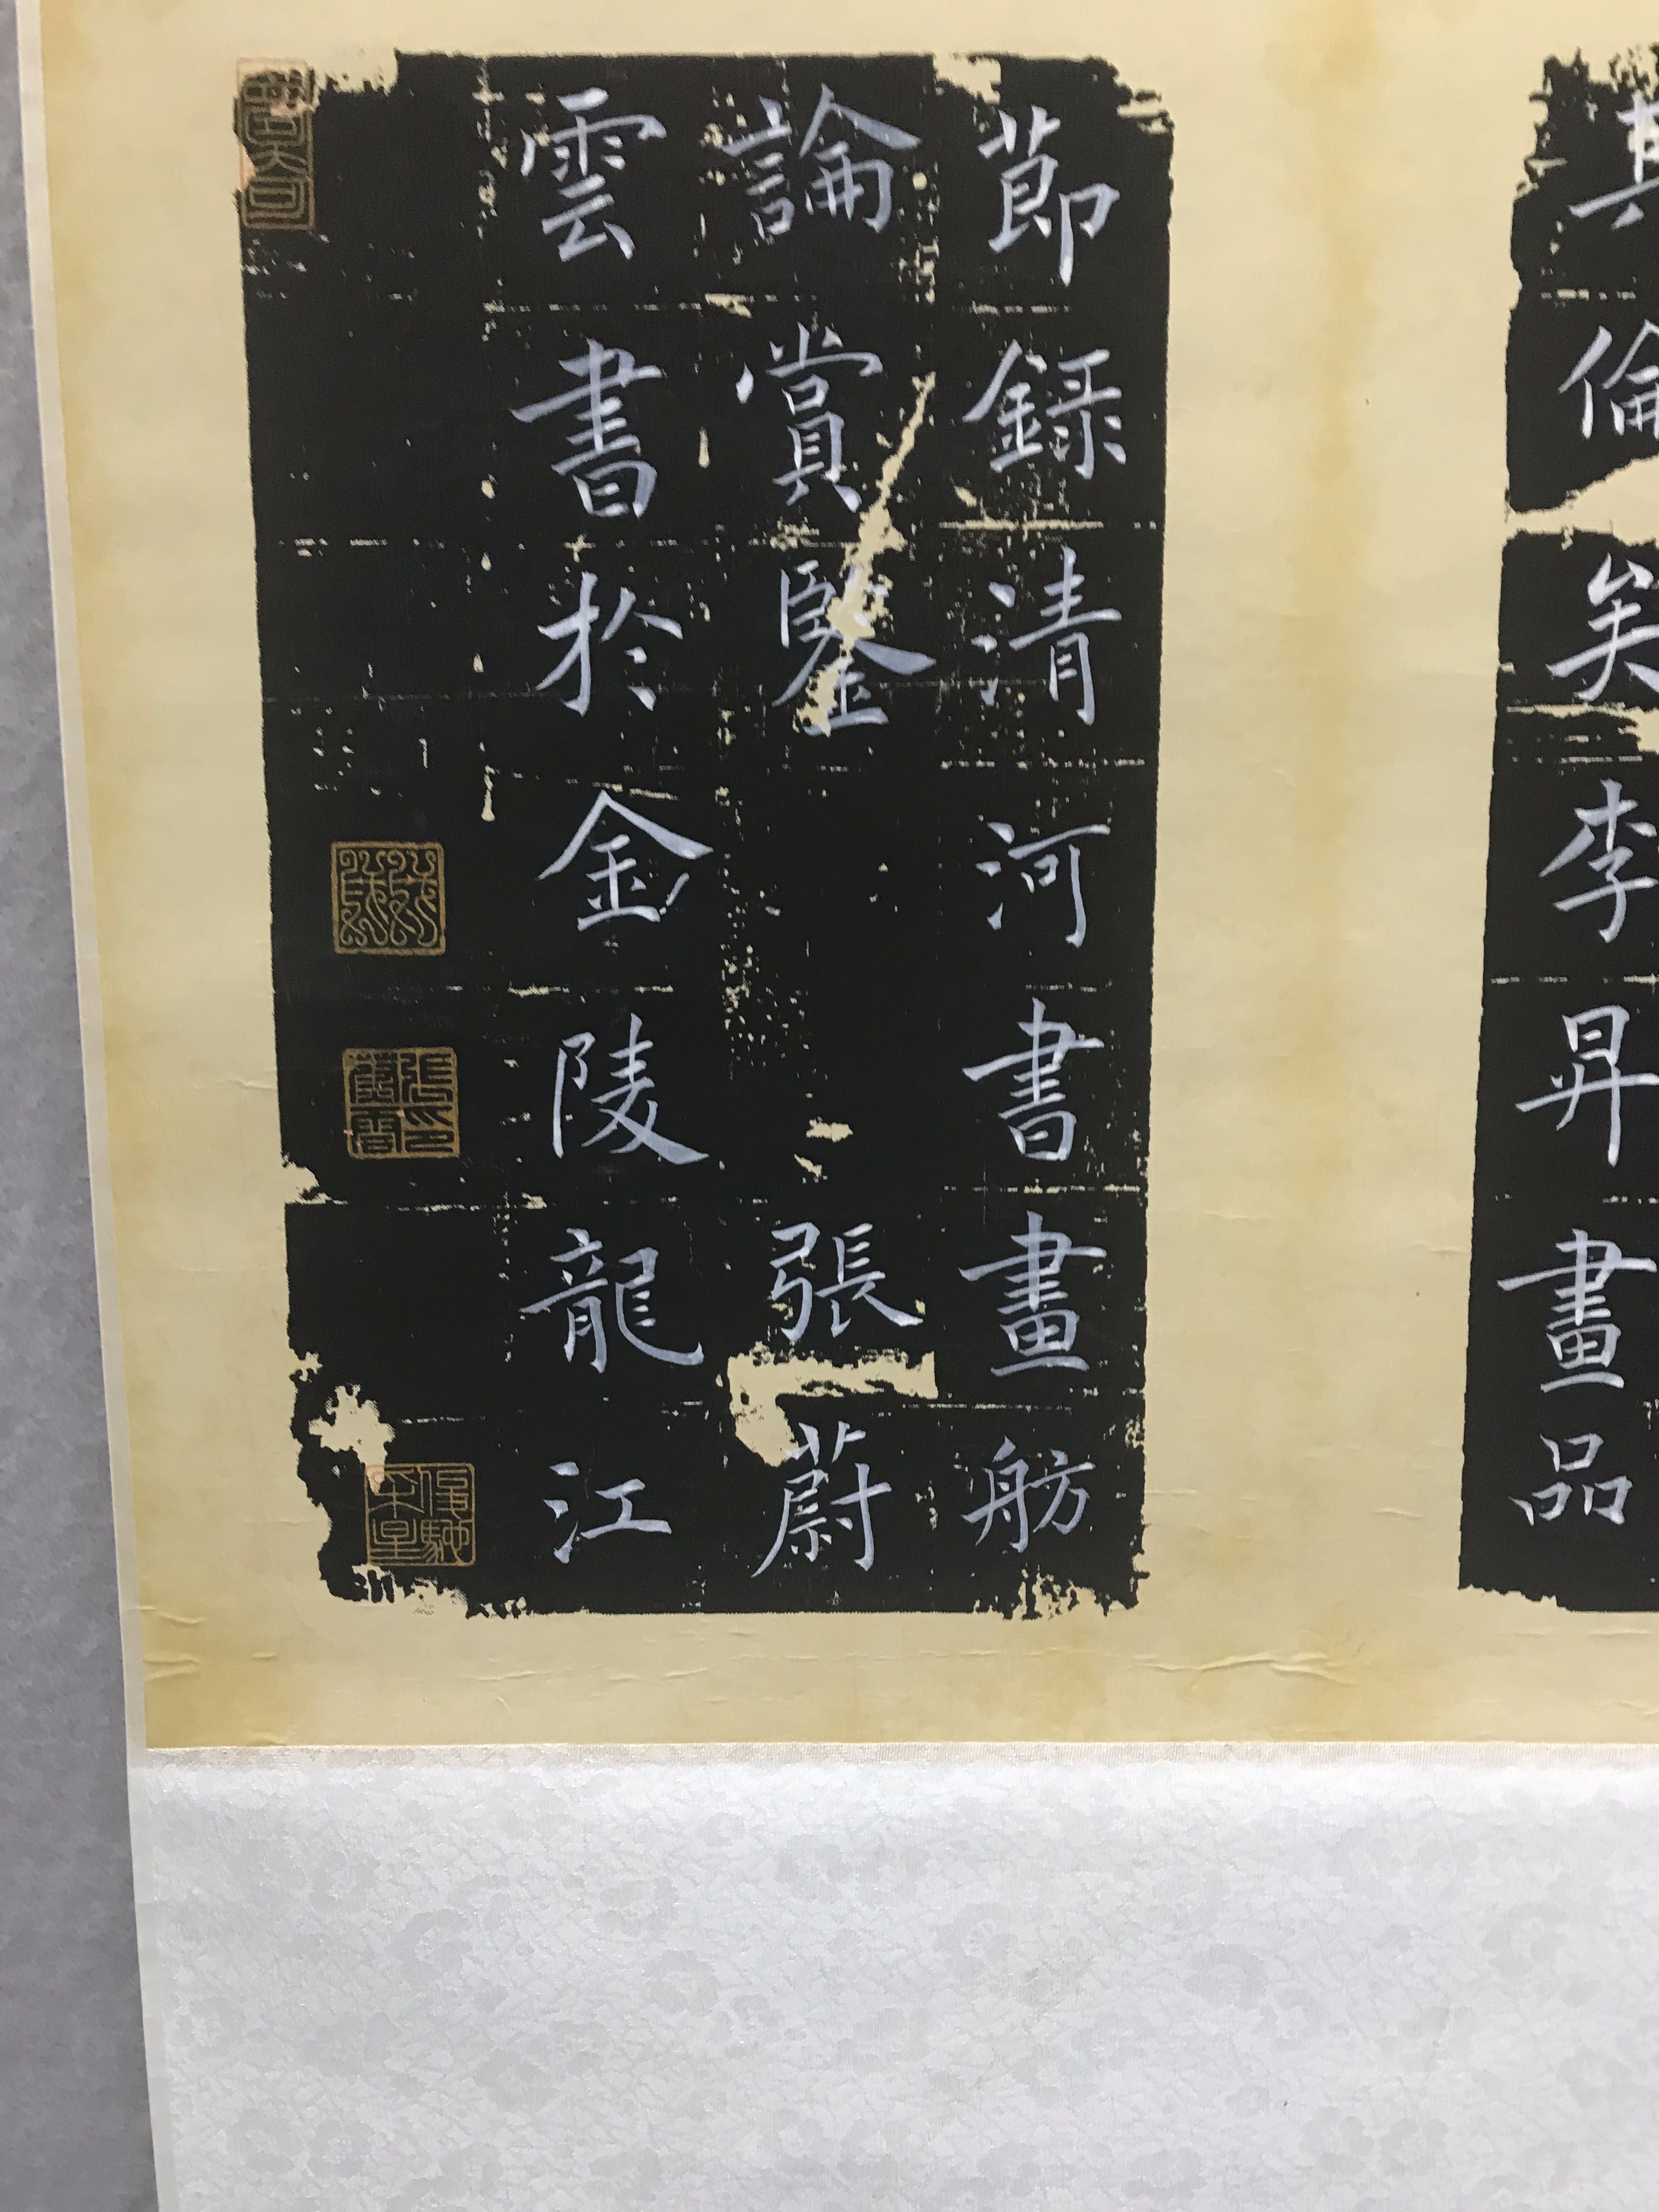 倫矣李昇畫品
節録清河書畫舫
論賞鑒 張蔚
雲書於金陵龍江